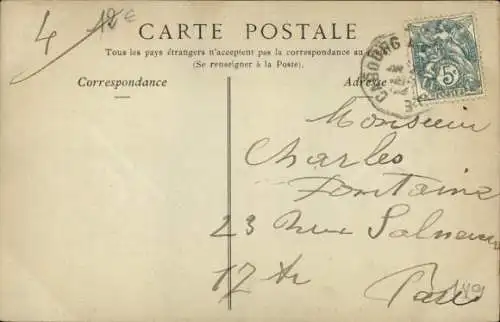 4 12€
CARTE POSTALE
Tous les pays étrangers n'acceptent pas la correspondance au
(Se renseigner à la Poste).
Correspondance
Adresse
CABOURG
5c
Monsieur
Charles
Fontaine
23 Rue
17 Ar Paris
149